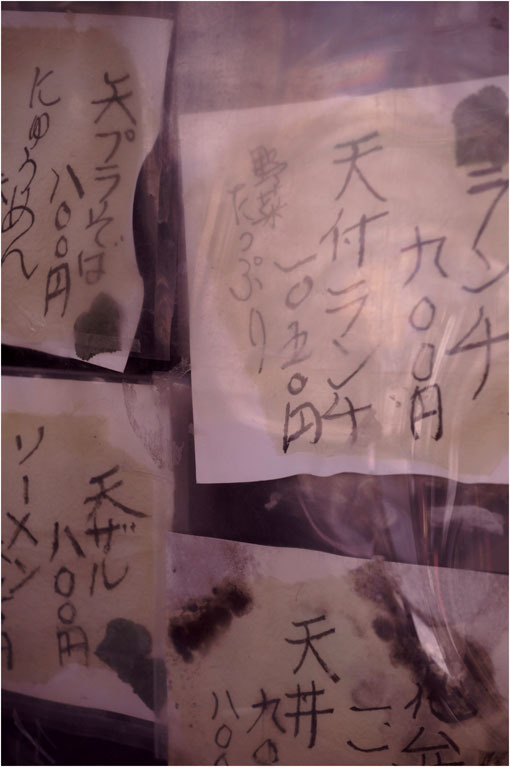 天プラそば
八〇〇円
にゅうめん
ランチ
九〇〇円
天付ランチ
一〇五〇円
野菜
たっぷり
天ザル
八〇〇円
ソーメン
天丼
九〇
八〇